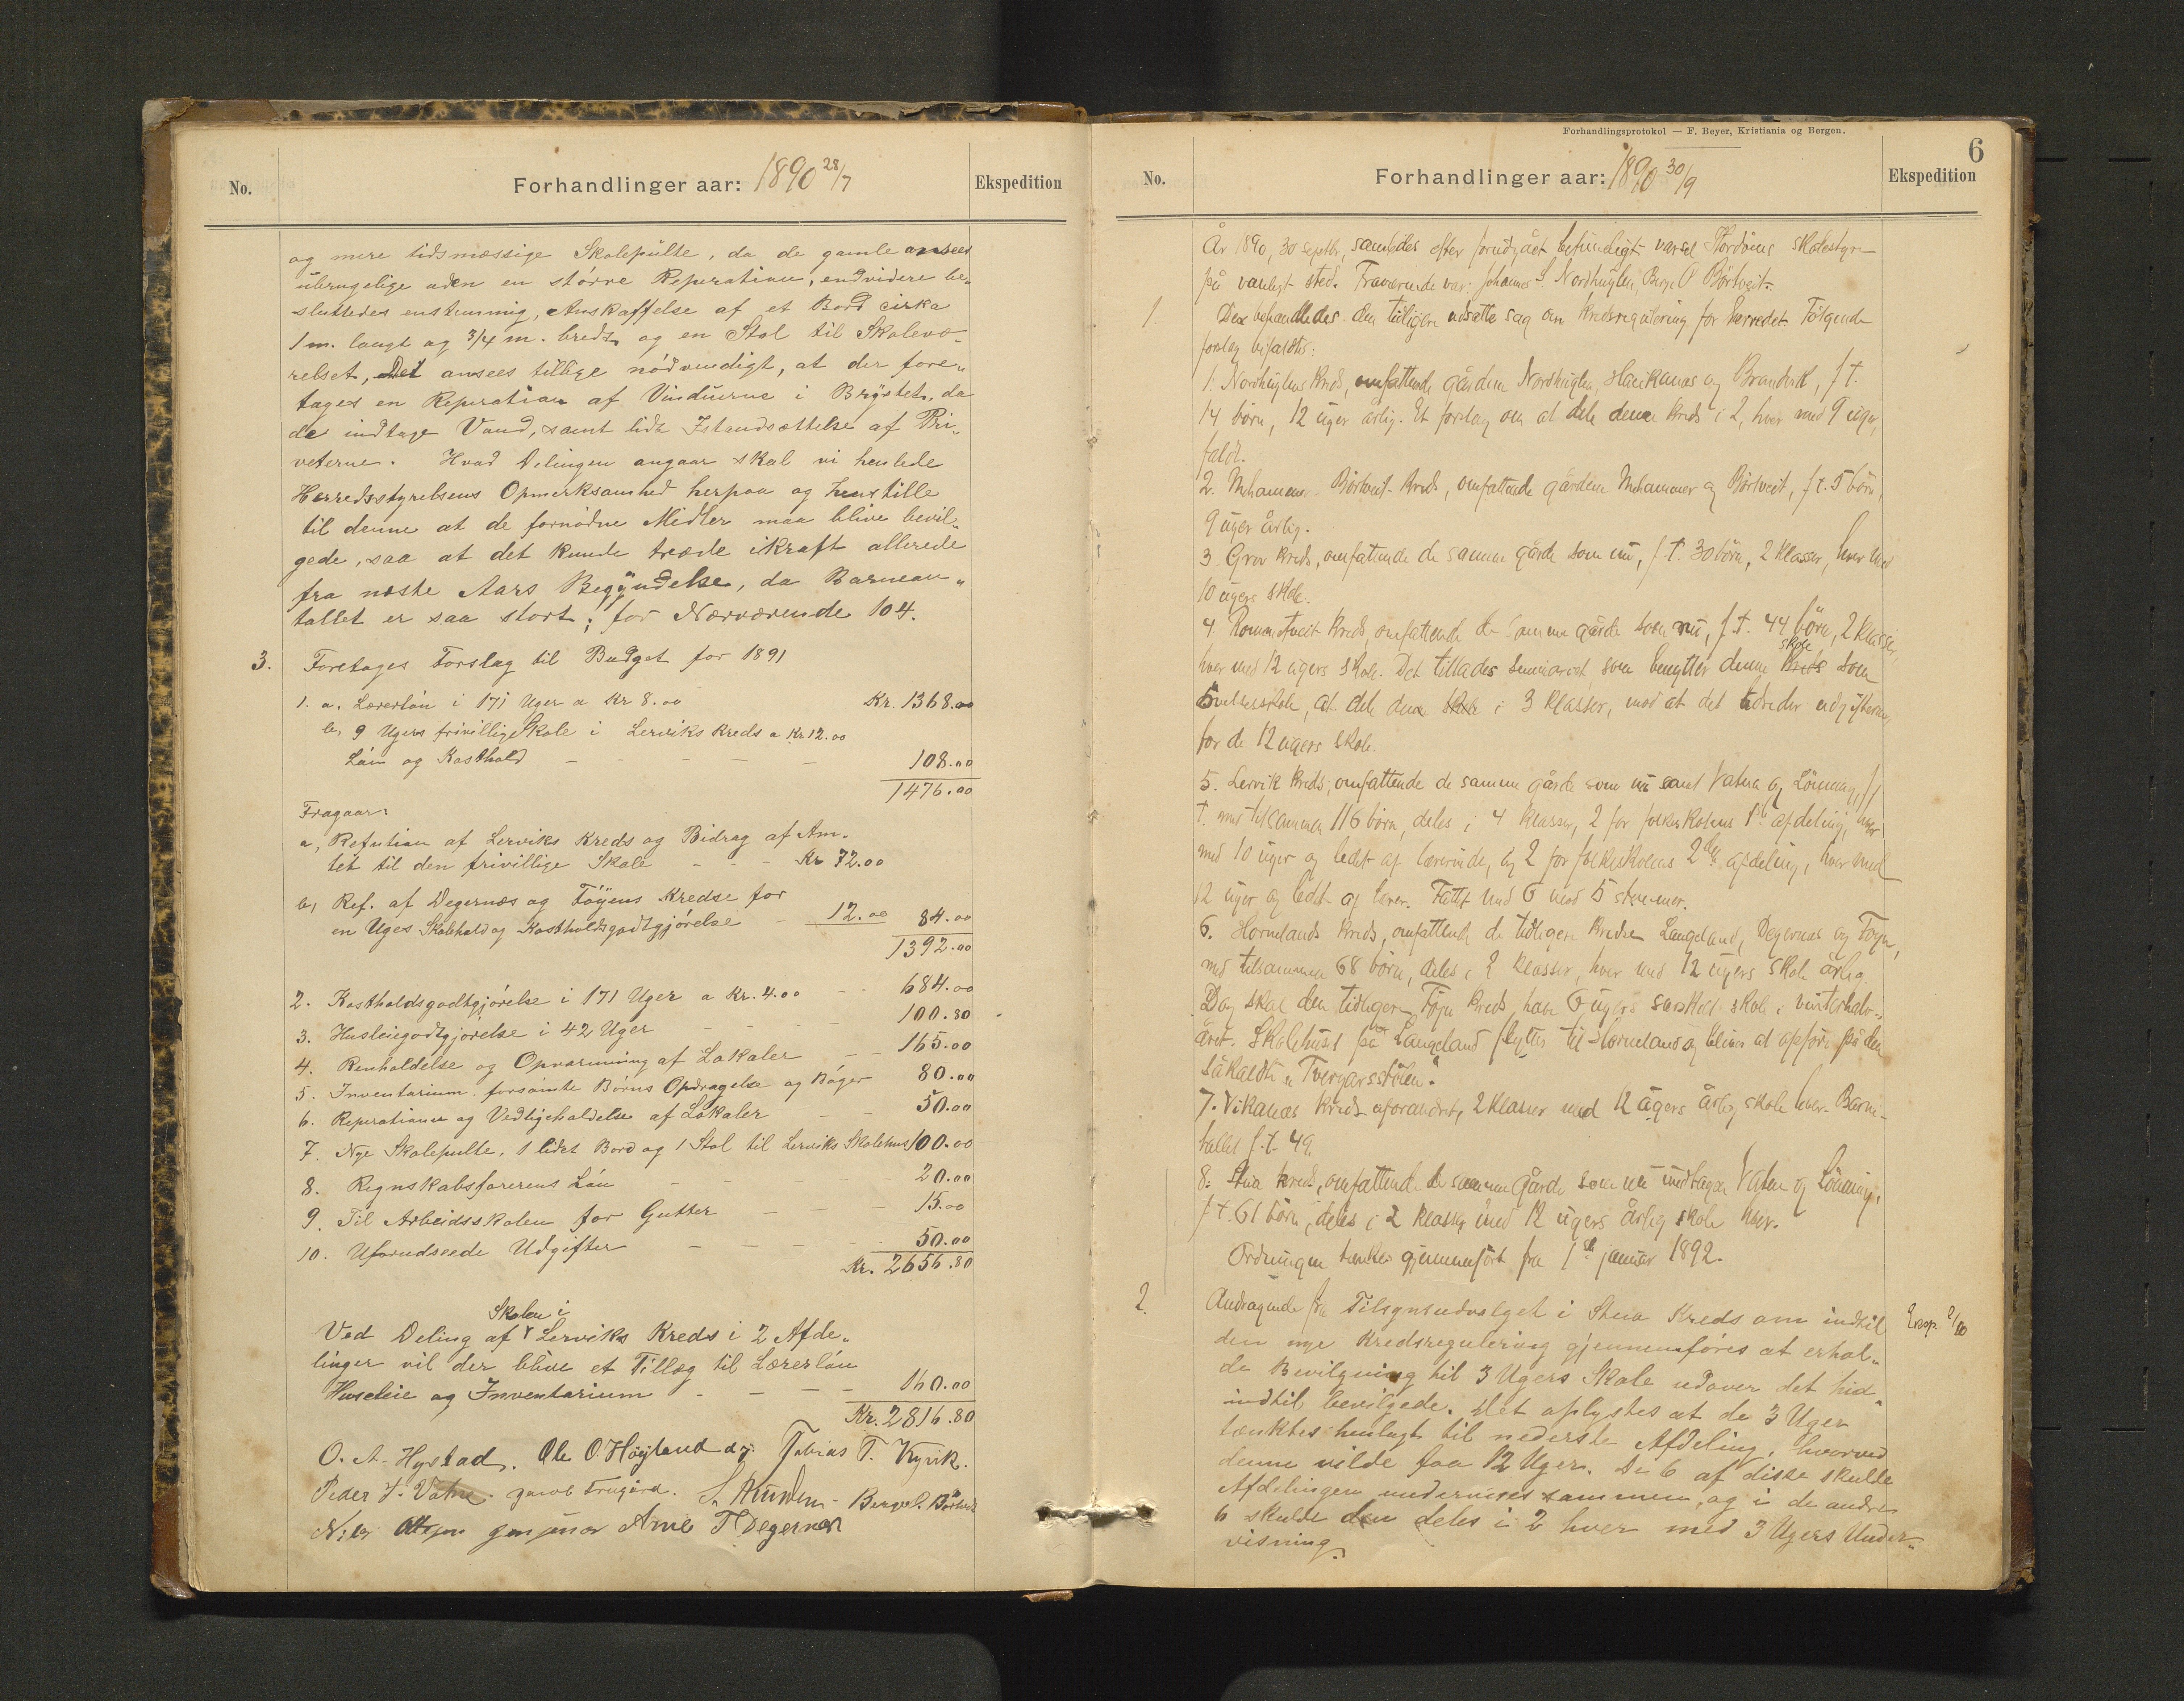 No.
Forhandlinger aar: 1890 28/7
Ekspedition
og mere tidsmæssige Skolepulte, da de gamle ansees
ubrugelige uden en større Reperation, endvidere be„
sluttedes enstemmig, Anskaffelse af et Bord cirka
1 m. langt og 3/4 m. bredt og en Stol til Skolevæ„
relset, Det ansees tillige nödvendigt, at der fore„
tages en Reperation af Vinduerne i Brystet, da
de indtage Vand, samt lidt Istandsættelse af Pri„
veterne. Hvad Delingen angaar skal vi henlede
Herredsstyrelsens Opmerksomhed herpaa og henstille
til denne at de fornødne Midler maa blive bevil„
gede, saa at det kunde træde ikraft allerede
fra næste Aars Begyndelse, da Barnean„
tallet er saa stort; for Nærværende 104.
3. Foretages Forslag til Budget for 1891
1. a. Lærerløn i 171 Uger a Kr 8.00 Kr. 1368.00
b, 9 Ugers frivillige Skole i Lerviks Kreds a Kr 12.00
Løn og Kosthold 108.00
1476.00
Fragaar:
a, Refution af Lerviks Kreds og Bidrag af Am„
tet til den frivillige Skole Kr 72.00
b, Ref. af Degernæs og Föyens Kredse for
en Uges Skolehold og Kostholdsgodtgjørelse 12.00 84.00
1392.00
2. Kostholdsgodtgjørelse i 171 Uger a Kr. 4.00 684.00
3. Husleiegodtgjørelse i 42 Uger 100.80
4. Renholdelse og Opvarmning af Lokaler 165.00
5. Inventarium forsømte Børns Opdragelse og Bøger 80.00
6. Reperationer og Vedligeholdelse af Lokaler 50.00
7. Nye Skolepulte, 1 lidet Bord og 1 Stol til Lerviks Skolehus 100.00
8. Regnskabsførerens Løn 20.00
9. Til Arbeidsskolen for Gutter 15.00
10. Uforudseede Udgifter 50.00
Kr. 2656.80
Skolen i
Ved Deling af Lerviks Kreds i 2 Afde„
linger vil der blive et Tillæg til Lærerløn
Husleie og Inventarium 160.00
Kr. 2816.80
O. A. Hystad. Ole O. Höyland d.y. Tobias T. Kyvik.
Peder T. Vatne. Jacob Trugård. Berge O. Börtveit
Nils Arne T Degernæs
Forhandlingsprotokol — F. Beyer, Kristiania og Bergen.
6
No.
Forhandlinger aar: 1890 30/9
Ekspedition
År 1890, 30 septbr, samledes efter forudgået befuldigt varsel Stordöens skolestyre
på vanligt sted. Fraværende var: Johannes S. Nordhuglen, Berge O Börtveit.
1. Der behandledes den tidligere udsatte sag om kredsregulering for herredet. Fölgende
forslag bifaldtes:
1. Nordhuglens kreds, omfattende gårdene Nordhuglen, Haukanæs og Brandvik, f. t.
14 börn, 12 uger årlig. Et forslag om at dele denne kreds i 2, hver med 9 uger,
faldt.
2. Mehammer-Börtveit kreds, omfattende gårdene Mehammer og Börtveit, f. t. 5 börn,
9 uger årlig.
3. Grov kreds, omfattende de samme gårde som nu, f. t. 30 börn, 2 klasser, hver med
10 ugers skole.
4. Rommetveit kreds, omfattende de samme gårde som nu, f. t. 44 börn, 2 klasser,
hver med 12 ugers skole. Det tillades seminariet som benytter denne kreds skole som
övelsesskole, at dele den skole i 3 klasser, mod at det udreder udgifterne
for de 12 ugers skole.
5. Lervik kreds, omfattende de samme gårde som nu samt Vatna og Lönning, f.
t. med tilsammen 116 börn, deles i 4 klasser, 2 for folkeskolens 1ste afdeling, hver
med 10 uger og ledet af lærerinde, og 2 for folkeskolens 2den afdeling, hver med
12 uger og ledet af lærer. Fattet med 6 mod 5 stemmer.
6. Hornelands kreds, omfattende de tidligere kredse Langeland, Degernæs og Föyn,
med tilsammen 68 börn, deles i 2 klasser, hver med 12 ugers skole årlig.
Dog skal den tidligere Föyn kreds have 6 ugers særskilt skole i vinterhalv„
året. Skolehuset på Langeland flyttes til Horneland og bliver at opföre på den
såkaldte „Tvergarsstölen“.
7. Vikanæs kreds uforandret, 2 klasser med 12 ugers årlig skole hver. Barne-
tallet f. t. 49.
8. Stua kreds, omfattende de samme gårde som nu undtagen Vatne og Lönning,
f. t. 61 börn, deles i 2 klasser med 12 ugers årlig skole hver.
Ordningen tænkes gjennemfört fra 1ste januar 1892.
2. Andragende fra Tilsynsudvalget i Stua Kreds om indtil
den nye Kredsregulering gjennemføres at erhol„
de Bevilgning til 3 Ugers Skole udover det hid„
indtil bevilgede. Det oplystes at de 3 Uger
tænktes henlagt til nederste Afdeling, hvorved
denne vilde faa 12 Uger. De 6 af disse skulde
Afdelingen undervises sammen, og i de andre
6 skulde den deles i 2 hver med 3 Ugers Under„
visning.
Exsp. 2/10